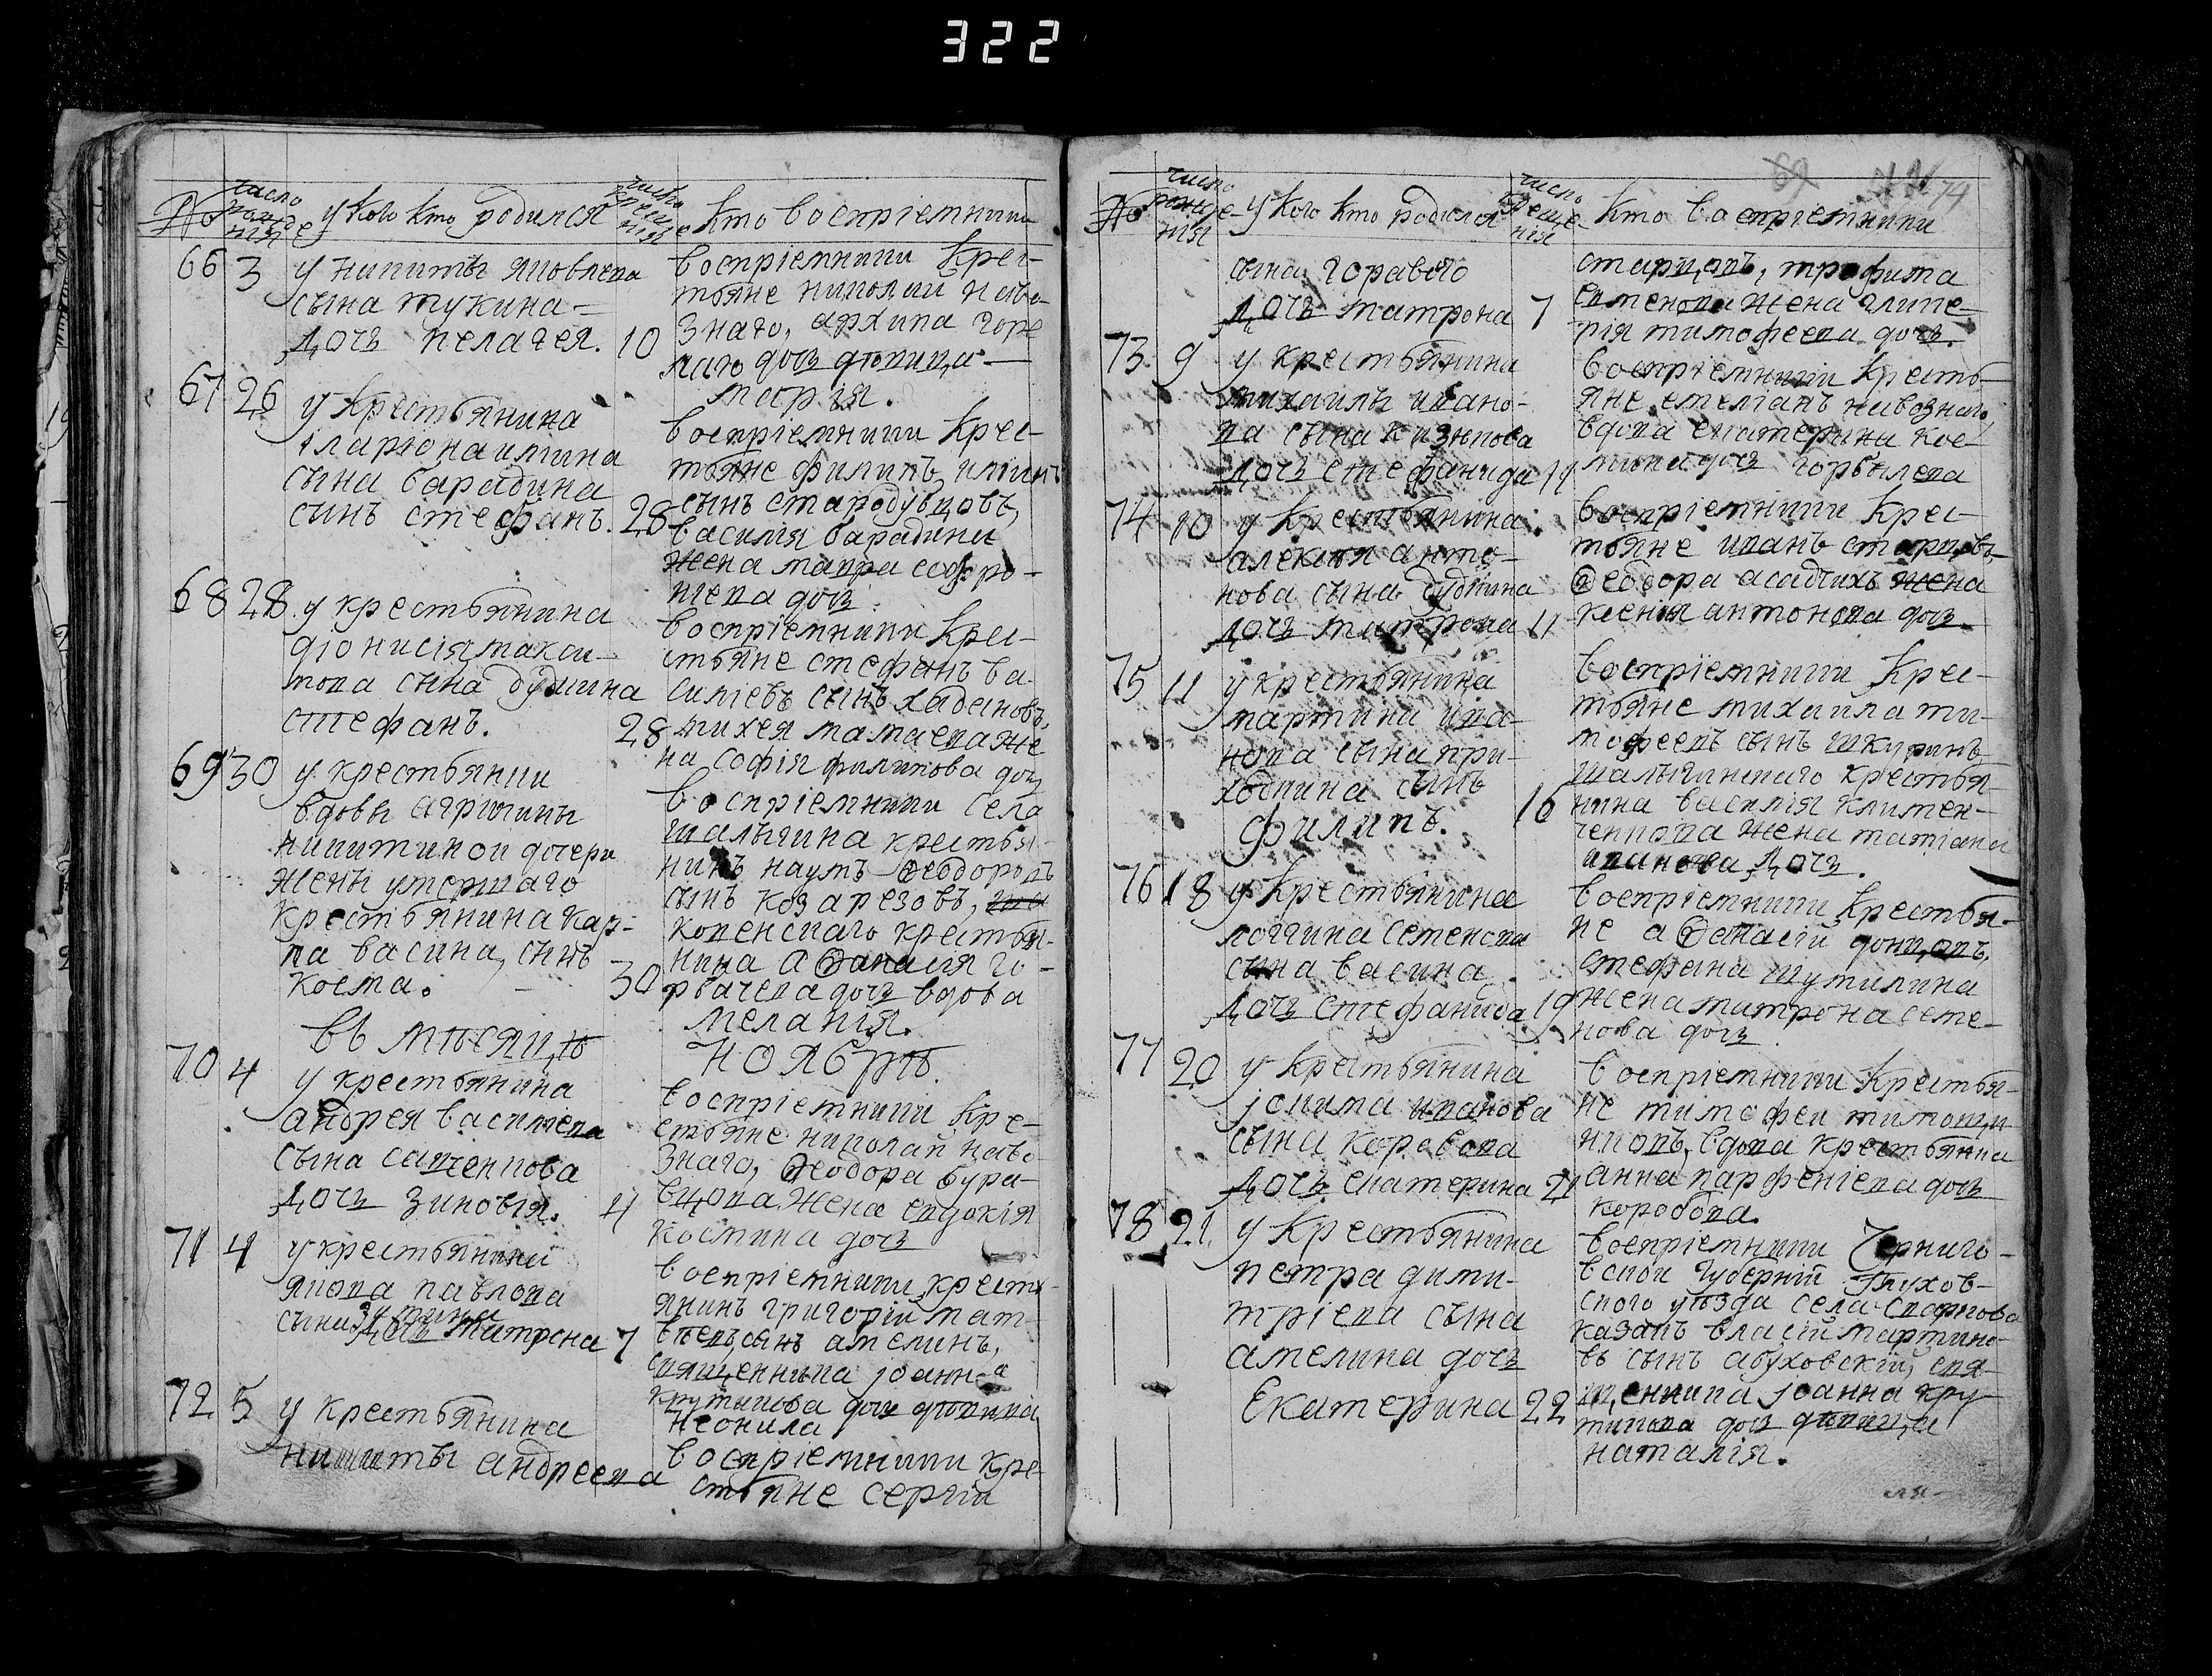 322
No
число рожденія
у кого кто родился
число крещенія
кто воспріемники
66 3
у никиты яковлева
сына тукина
дочь пелагея. 10
воспріемники крес-
тьяне николай наво-
знаго, архипа горе
лаго дочь девица
марія.
67 26
у крестьянина
іларіона илина
сына барадина
синъ стефанъ. 28
воспріемники крес-
тьяне филипъ илинъ
сынъ стародубцовъ,
василія барадина
жена мавра софро-
ніева дочь.
68 28
у крестьянина
діонисія макси-
мова сына дудкина
стефанъ. 28
воспріемники крес-
стьяне стефанъ ва-
силіевъ сынъ хадановъ,
михея мамаева же
на софія филипова дочь
69 30
у крестьянки
вдовы агрипины
никитиной дочери
жены умершаго
крестьянина кар-
па васина, сынъ
косма. 30
воспріемники села
шалыгина крестья-
нинъ наумъ ѳеодоровъ
сынъ козарезовъ,
копенскаго крестья-
нина аѳанасія го-
рбачева дочь вдова
меланія.
въ мѣсяцѣ
ноябрѣ.
70 4
у крестьянина
андрея василіева
сына савченкова
дочь зиновія. 4
воспріемники кре-
стьяне николай наво-
знаго, ѳеодора бура-
вцова жена евдокія
костина дочь
71 4
у крестьянина
якова павлова
сына
дочь матрона 7
воспріемники, кресть-
янинъ григорій мат-
вѣевъ сынъ амелинъ,
священника іоанна
крупикова дочь девица
неонила
72 5
у крестьянина
никиты андреева
воспріемники кре-
стьяне сергій
82
74
No
число рожденія
у кого кто родился
число крещенія
кто воспріемники
сына горавого
дочь матрона 7
старцовъ, трофима
семенова жена глике-
рія тимофеева дочь.
73 9
у крестьянина
михаилы ивано-
ва сына казюкова
дочь стефанида 14
воспріемники кресть-
яне емеліанъ навознаго,
вдова екатерина кос-
мина дочь горбылева
74 10
у крестьянина
алексія анто-
нова сына дудкина
дочь матрона 11
воспріемники крес-
тьяне иванъ старцовъ
ѳеодора асадчихъ жена
ксенія антонова дочь
75 11
у крестьянина
мартина ива-
нова сына при-
ходкина сынъ
филипъ. 16
воспріемники крес-
тьяне михаила ти-
мофеевъ сынъ шкуринъ
шалыгинскаго крестья
нина василія климен-
ченкова жена татіана
иванова дочь.
76 18
у крестьянина
логгина семенова
сына васина
дочь стефанида 19
воспріемники крестья-
не аѳанасій донцовъ,
стефана шутилина
жена матрона семе-
нова дочь
77 20
у крестьянина
іоакима иванова
сына коробова
дочь екатерина 21
воспріемники крестья-
не тимофеи
вдова крестьянка
анна парфеніева дочь
коробова.
78 21
у крестьянина
петра дими-
тріева сына
амелина дочь
Екатерина 22
воспріемники Черниго-
вской губерній Глухов-
ского уѣзда села
казакъ власій мартино-
въ сынъ абуховскій, свя-
щенника іоанна кру
пикова дочь девица
наталія.